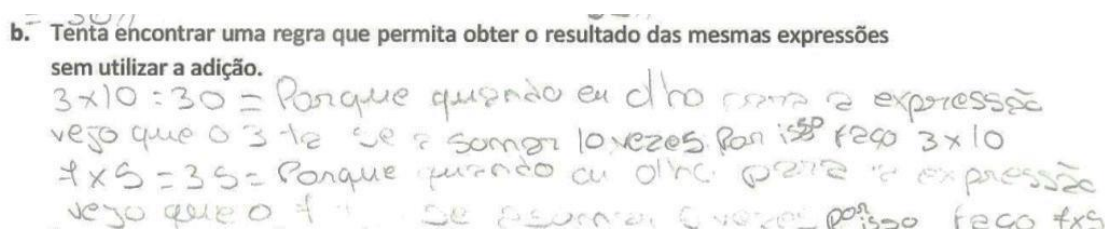 = 30//
b. Tenta encontrar uma regra que permita obter o resultado das mesmas expressões
sem utilizar a adição.
3x10 = 30 = Porque quando eu olho para a expressão
vejo que o 3 se a somar 10 vezes. Por isso faço 3x10
7x5 = 35 = Porque quando eu olho para a expressão
vejo que o 7 se a somar 5 vezes por isso faço 7x5